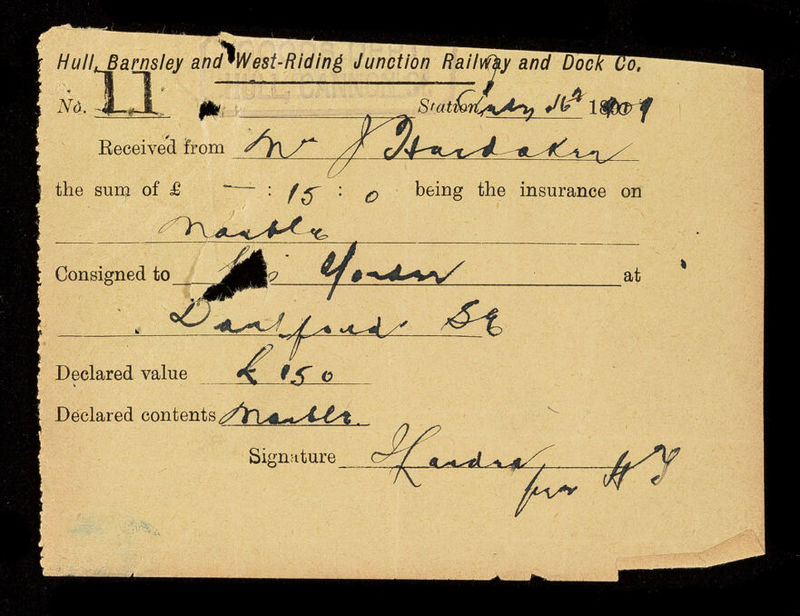 Hull, Barnsley and West-Riding Junction Railway and Dock Co.
GOODS DEPT
HULL, CANNON ST.
No. 11 Station, July 16th 1909
Received from Mr J Hardaker
the sum of £ — : 15 : 0 being the insurance on
Marble
Consigned to his Order at
Dartford SE
Declared value £ 150
Declared contents Marble.
Signature
per